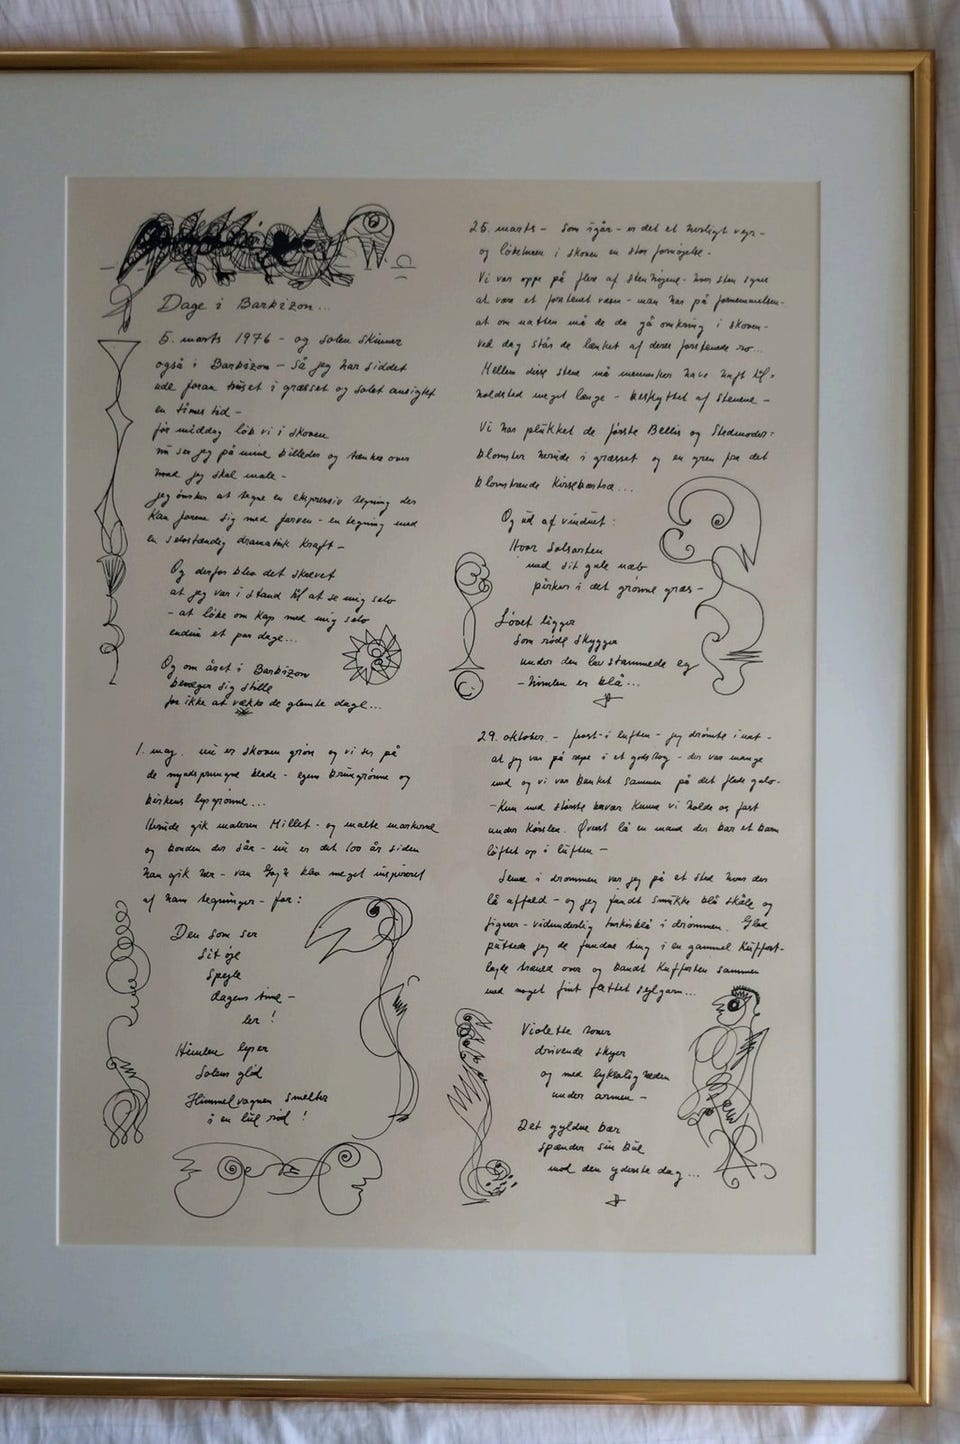 Dage i Barbizon...
5. marts 1976 - og solen skinner
også i Barbizon - så jeg har siddet
ude foran huset i græsset og solet ansigtet
en times tid -
før middag løb vi i skoven
nu ser jeg på mine billeder og tænker over
hvad jeg skal male -
jeg ønsker at tegne en ekspressiv tegning der
kan forene sig med farven - en tegning med
en selvstændig dramatisk kraft -
Og derfor blev det skrevet
at jeg var i stand til at se mig selv
- at løbe om kap med mig selv
endnu et par dage...
Og om året i Barbizon
bevæger sig stille
for ikke at vække de glemte dage...
1. maj. nu er skoven grøn og vi ser på
de nyudsprungne blade - egens brungrønne og
birkens lysgrønne...
Herude gik maleren Millet - og malte markerne
og bonden der sår - nu er det 100 år siden
han gik her - van Gogh blev meget inspireret
af hans tegninger - for:
Den som ser
sit øje
spejle
dagens time -
ler!
Himlen lyser
Solens glöd
Himmelvognen smelter
i en lul rød!
25. marts - som igår - er det et herligt vejr -
og löbeturen i skoven en stor fornøjelse -
Vi var oppe på flere af stenhøjene - hver sten synes
at være et forstenet væsen - man har på fornemmelsen -
at om natten må de da gå omkring i skoven -
ved dag står de lænket af deres forstenede ro...
Mellem disse stene må mennesker have haft til=
holdsted meget længe - beskyttet af stenene -
Vi har plükket de første Bellis og Stedmoder=
blomster herude i græsset og en gren fra det
blomstrende Kirsebærtræ...
Og üd af vinduet:
Hvor Solsorten
med sit gule næb
pirker i det grønne græs -
Løvet ligger
som røde skygger
under den lavstammede eg
- himlen er blå...
29. oktober - frost - i luften - jeg drömte i nat -
at jeg var på rejse i et godstog - der var mange
med og vi var banket sammen på det flade gulv -
- Kun med største besvær kunne vi holde os fast
under kørslen. Øverst lå en mand der bar et barn
løftet op i lüften -
Senere i drømmen var jeg på et sted hvor der
lå affald - og jeg fandt smukke blå skåle og
figurer - vidunderlig turkisblå i drömmen. Glad
püttede jeg de fundne ting i en gammel Küffert -
lagde brænd over og bandt Kufferten sammen
med noget fint flettet sejlgarn...
Violette toner
drivende skyer
og med lyksalig heden
under armen -
Det gyldne bær
spænder sin bue
mod den yderste dag...